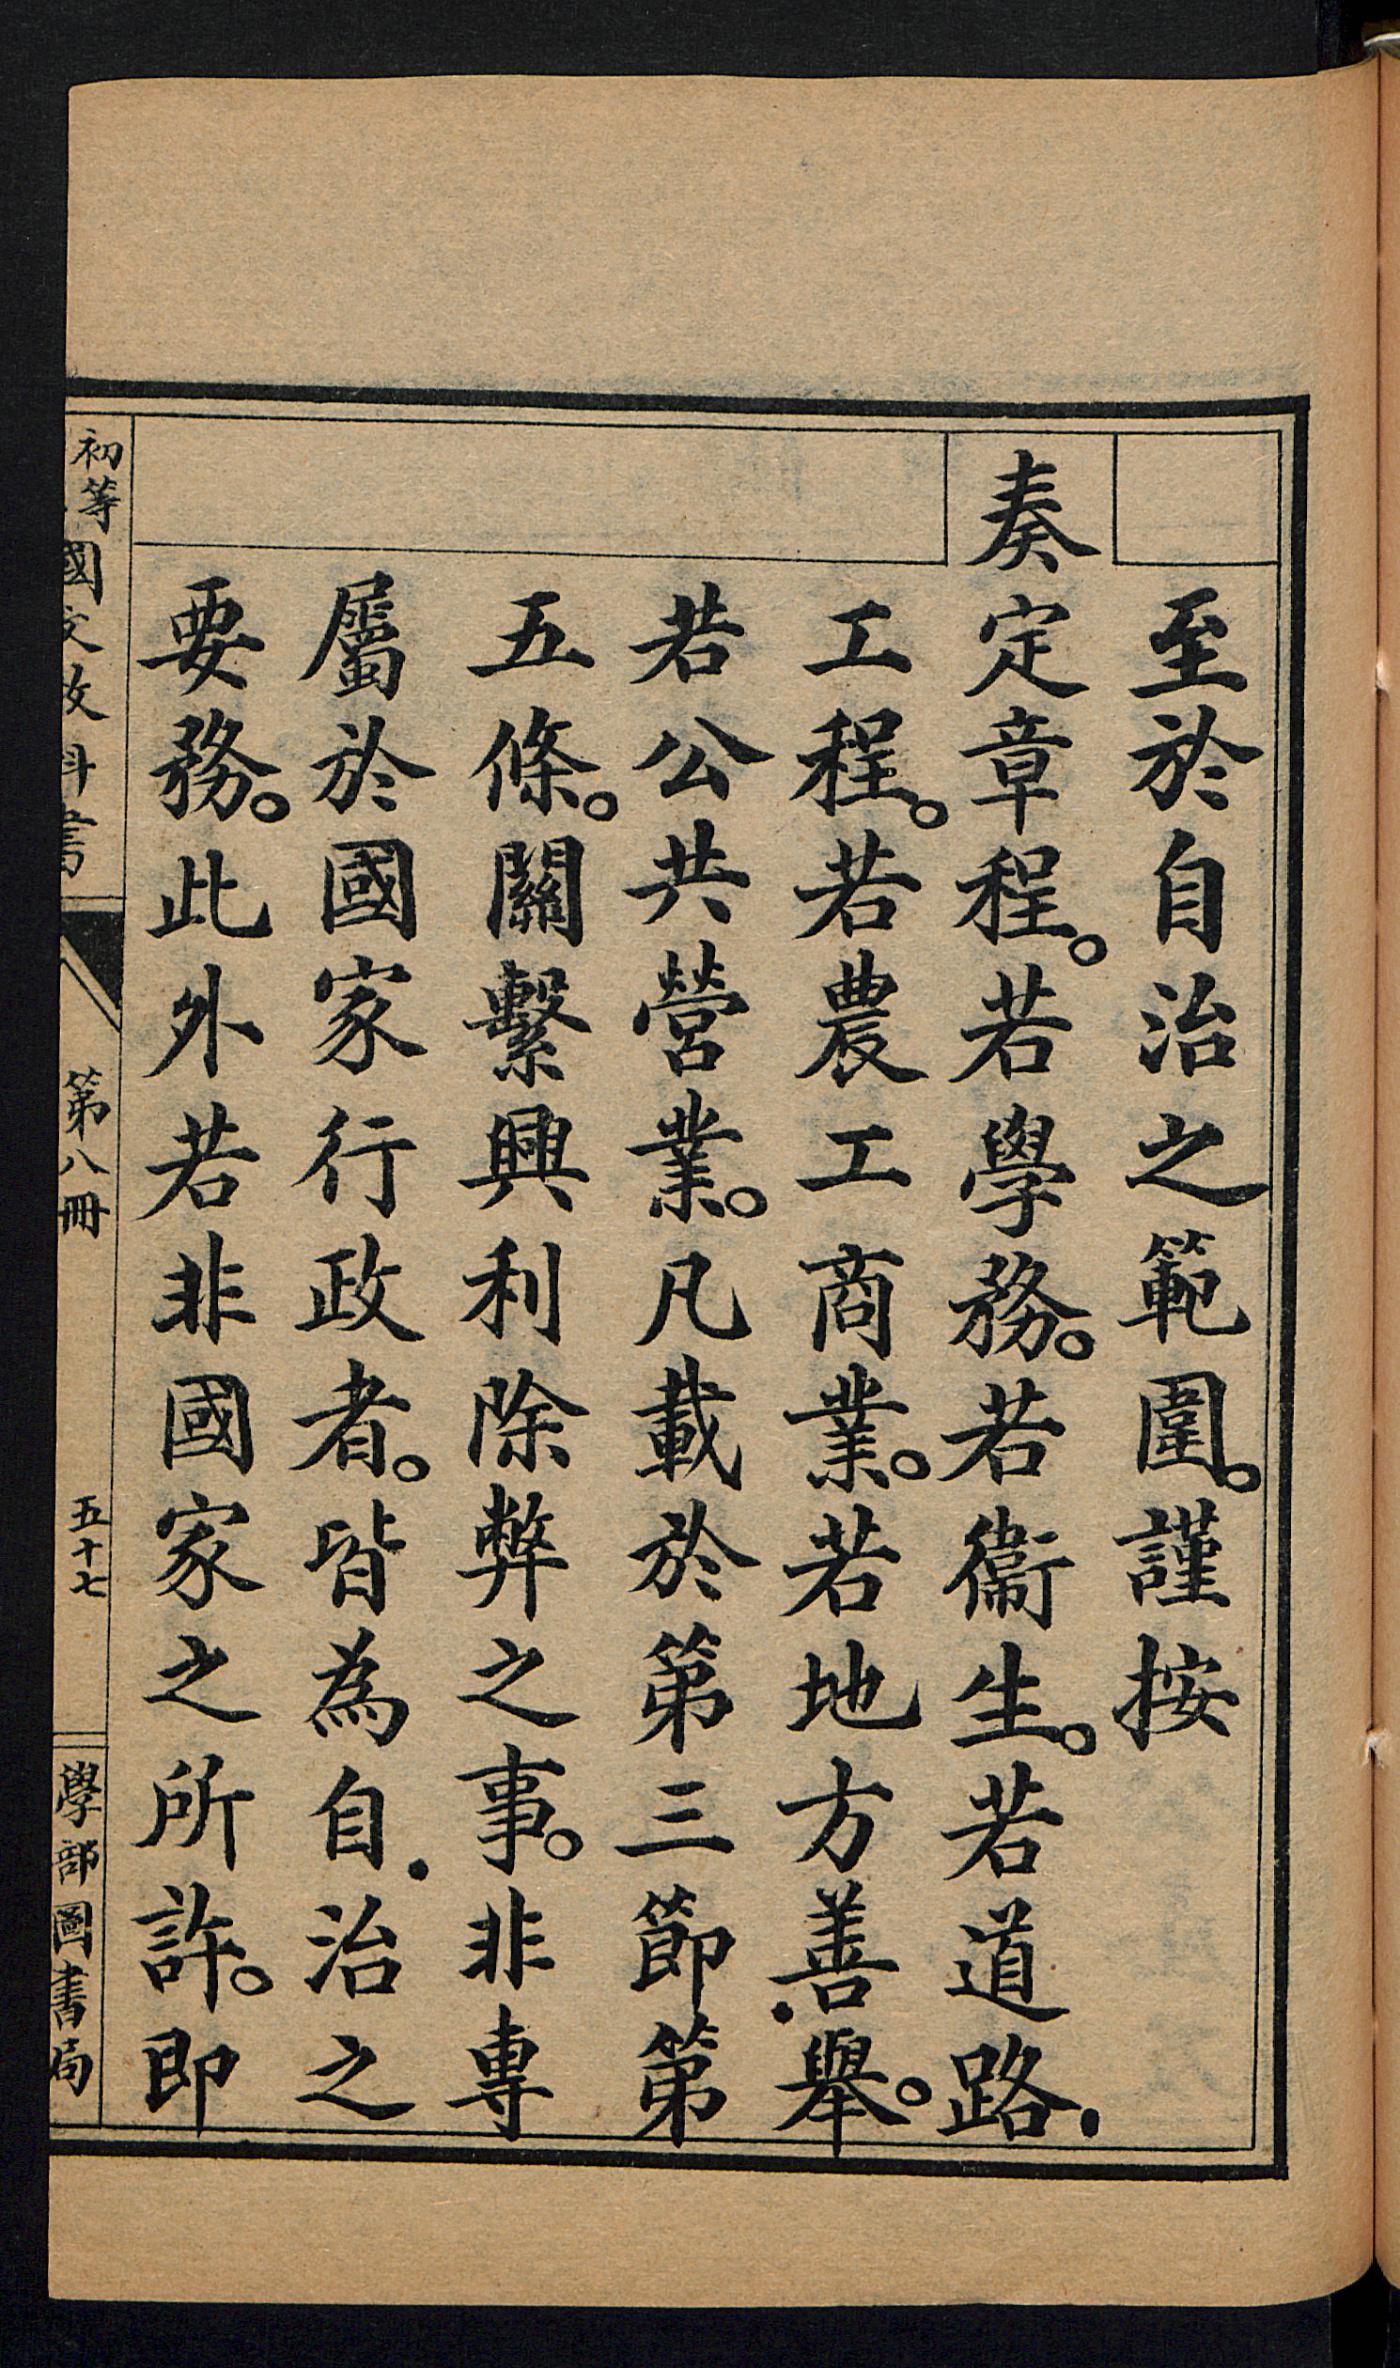 至於自治之範圍。謹按
奏定章程。若學務。若衞生。若道路
工程。若農工商業。若地方善舉。
若公共營業。凡載於第三節第
五條。關繫興利除弊之事。非專
屬於國家行政者。皆為自治之
要務。此外若非國家之所許。即
初等
國文教科書
第八冊
五十七
學部圖書局